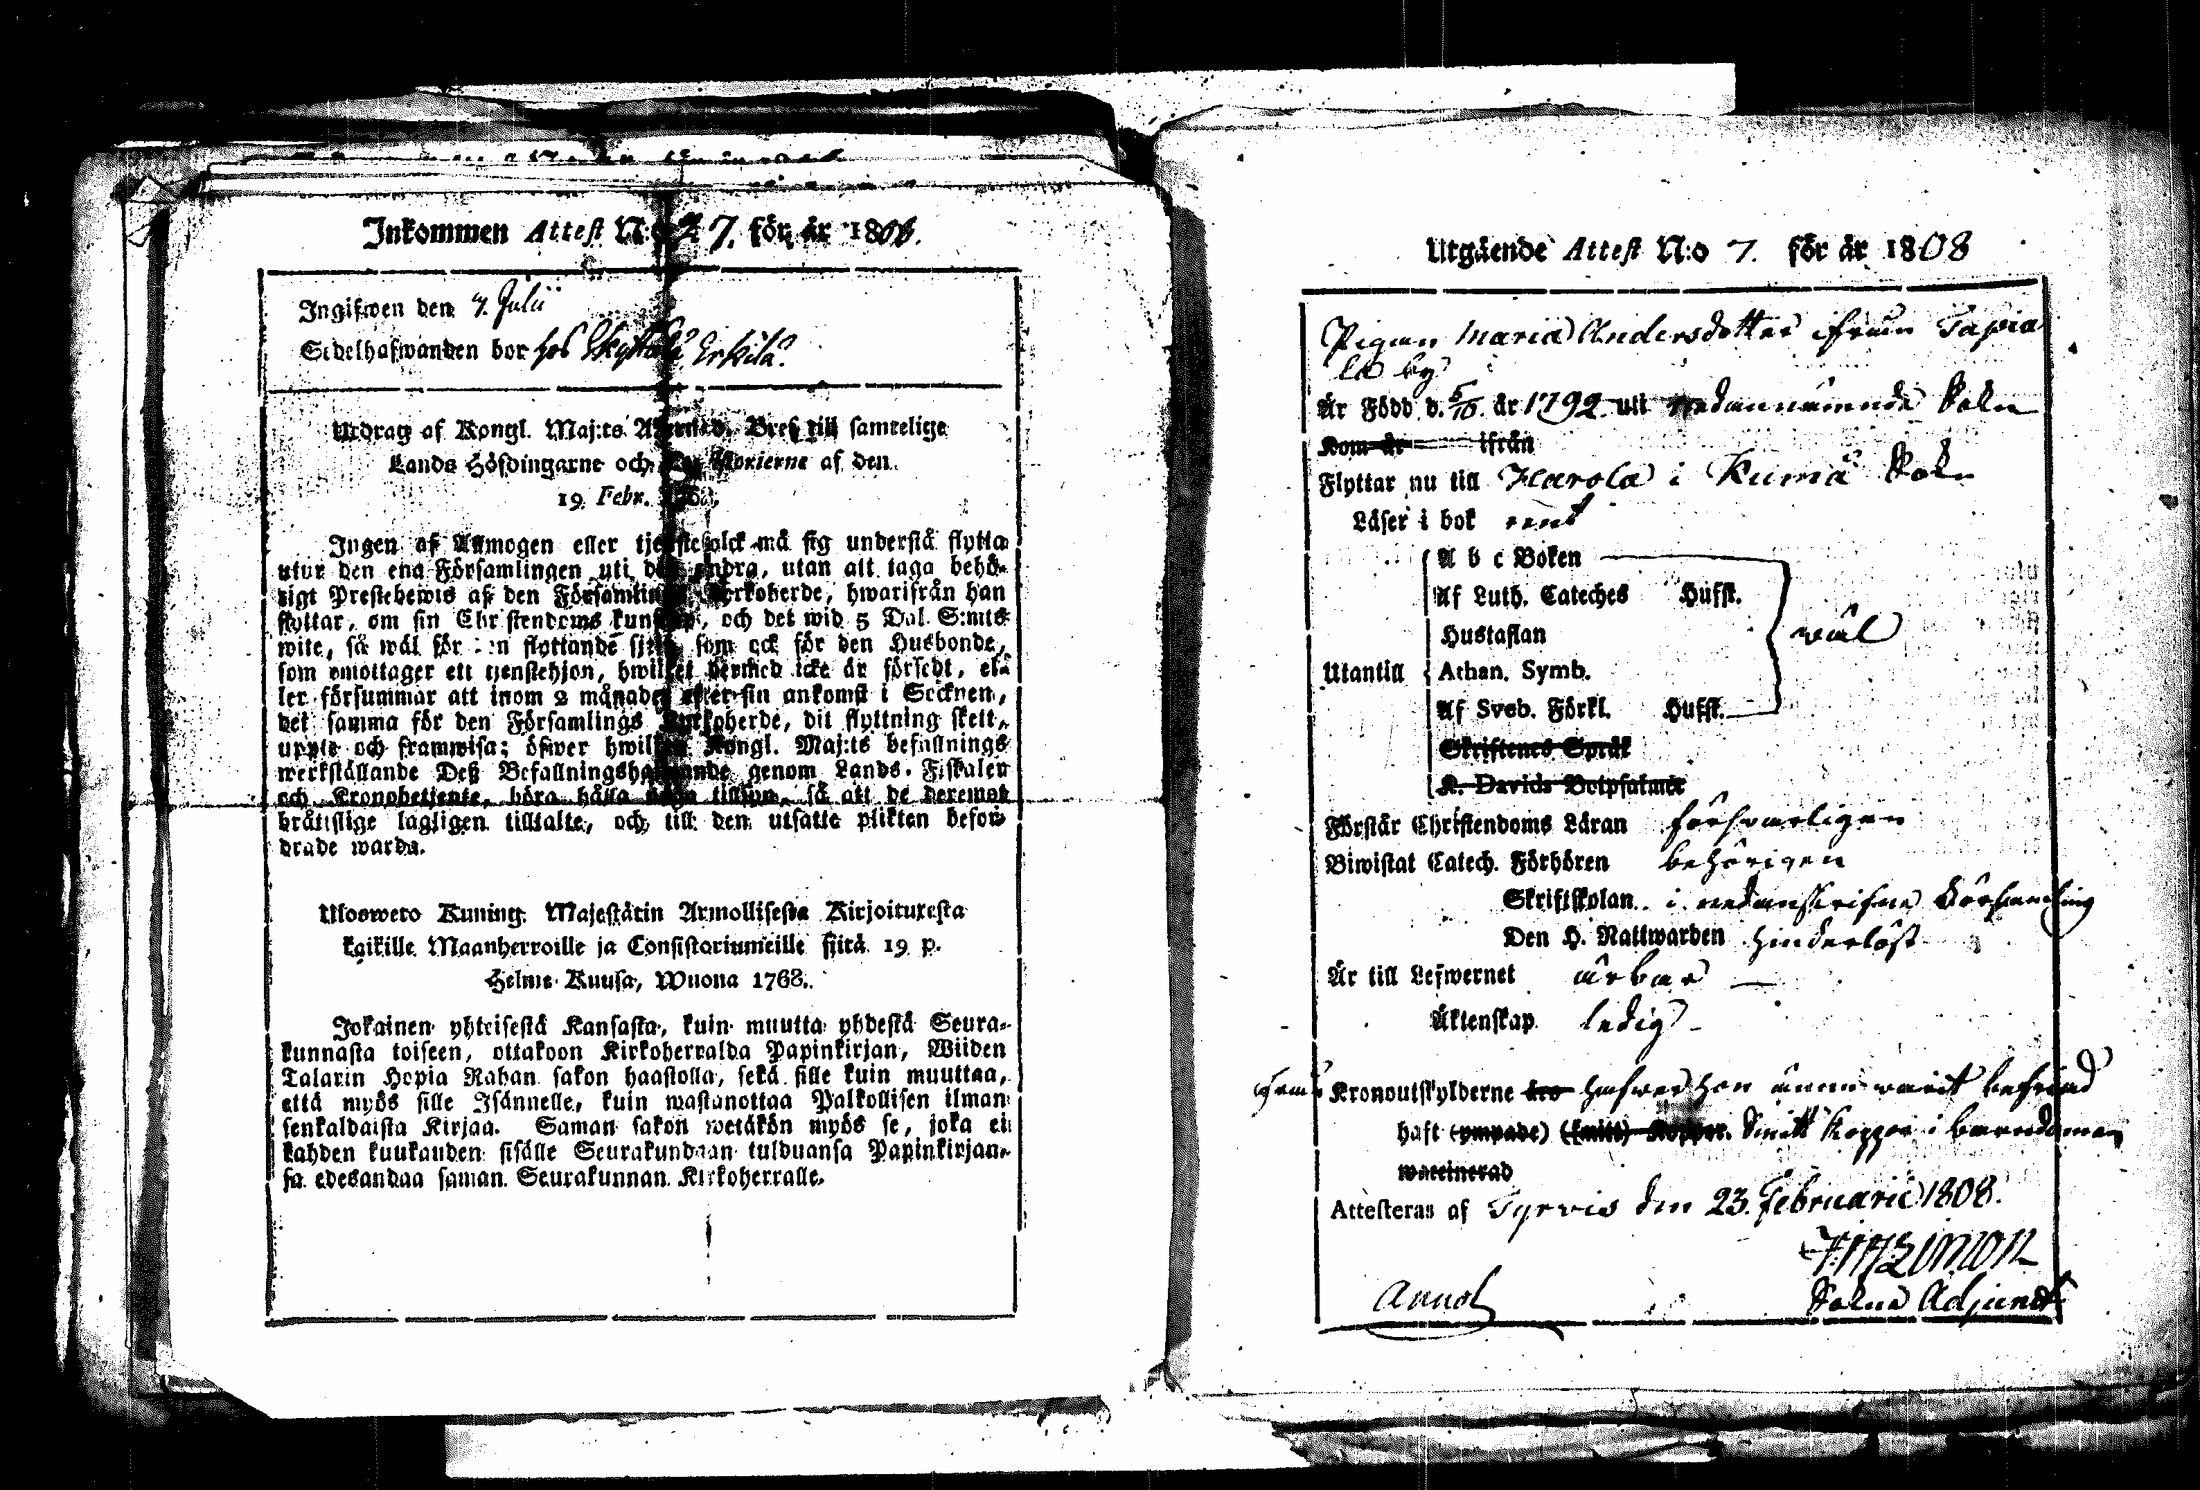 Inkommen Attest N:o 27. för år 1806.
Ingifwen den 7. Julii
Sedelhafwanden bor hos Skyttälä Erkilä
Utdrag af Kongl. Maj:ts Bref till samtelige
Lands Höfdingarne och af den
19 Febr.
Ingen af Allmogen eller tjenstefolck må sig understå flytta
utur den ena Församlingen uti den andra, utan att taga behö-
rigt Prestebewis af den Församlings Kyrkoherde, hwarifrån han
flyttar, om sin Christendoms kunskap, och det wid 5 Dal. S:mts
wite, så wäl för den flyttande sjelf, som ock för den Husbonde,
som emottager ett tjenstehjon, hwilket dermed icke är försedt, el-
ler försummar att inom 2 månader efter sin ankomst i Socknen,
det samma för den Församlings Kyrkoherde, dit flyttning skett,
uppte och framwisa; öfwer hwilken Kongl. Maj:ts befallnings
werkställande Deß Befallningshafwande genom Lands-Fiskalen
och Kronobetjente, böra hålla noga tillsyn, så att de deremot
bråttslige lagligen tilltalte, och till den utsatte plikten befor-
drade warda.
Uloswero Kuning. Majestätin Armollisesta Kirjoituxesta
kaikille Maanherroille ja Consistoriumeille siitä 19 p.
Helme-Kuusa, Wuona 1768.
Jokainen yhteisestä Kansasta, kuin muutta yhdestä Seura-
kunnasta toiseen, ottakoon Kirkoherralda Papinkirjan, Wiiden
Talarin Hopia Rahan sakon haastolla, sekä sille kuin muuttaa,
että myös sille Isännelle, kuin wastanottaa Palkollisen ilman
senkaldaista Kirjaa. Saman sakon wetäkön myös se, joka ei
kahden kuukauden sisälle Seurakundaan tulduansa Papinkirjan-
sa edesandaa saman Seurakunnan Kirkoherralle.
Utgående Attest N:o 7. för år 1808
Pigan Maria Andersdotter ifrån Tapia
la by
Är Född d. 5/10 år 1792 uti nedannämnde Sokn
Kom år ifrån
Flyttar nu till Harola i Kumå Sokn
Läser i bok rent
A b c Boken
Af Luth. Cateches Hufst.
Hustaflan wäl
Utantill Athan. Symb.
Af Sveb. Förkl. Hufst.
Skriftenes Språk
K. Davids Botpsalmer
Förstår Christendoms Läran försvarligen
Biwistat Catech. Förhören behörigen
Skriftskolan i nedanskrifne Församling
Den H. Nattwarden hinderlöst
Är till Lefwernet ärbar
Äktenskap ledig
från Kronoutskylderne äro hafwer hon ännu warit befriad
haft (ympade) (smitt) Koppor. Smitt Koppor i barndomen
waccinerad
Attesteras af Tyrvis den 23. Februarii 1808.
Sokne Adjunct